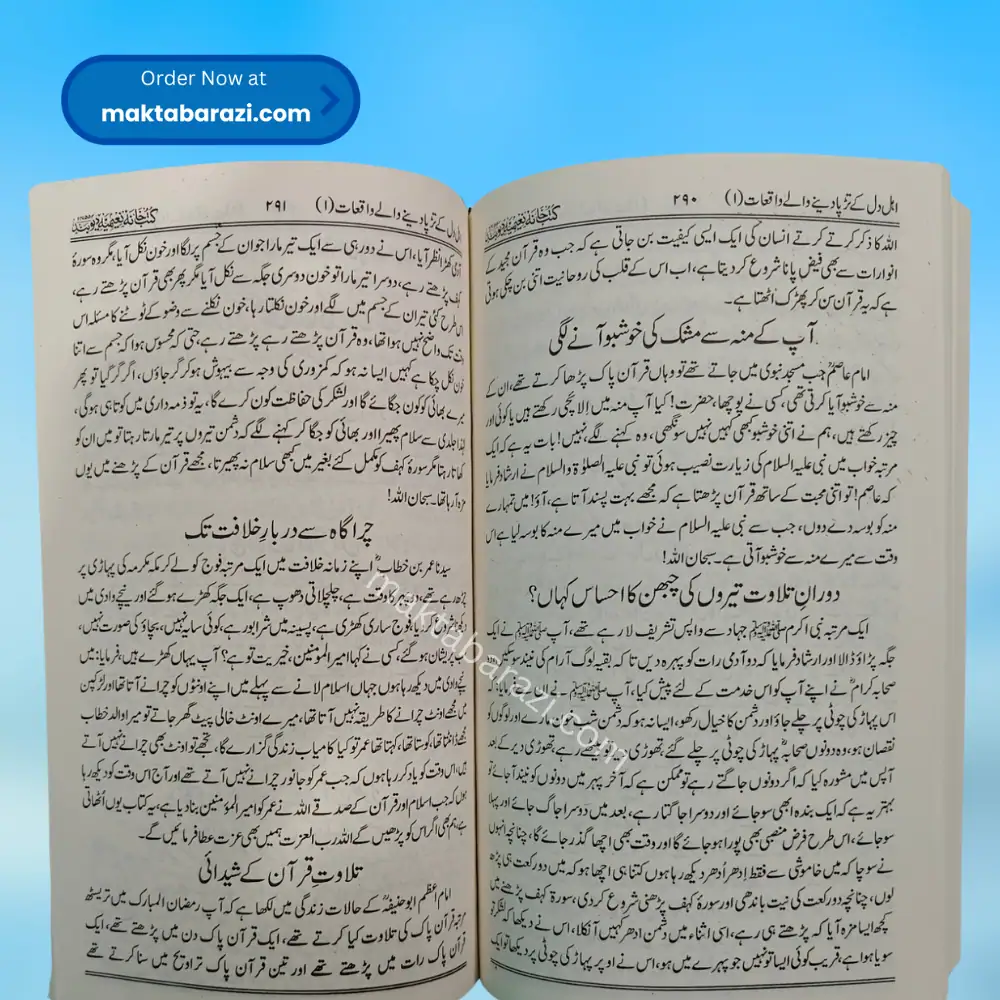 Order Now at
maktabarazi.com
اہل دل کے تڑپا دینے والے واقعات (۱) ۲۹۰ کتب خانہ نعیمیہ دیوبند
اللہ کا ذکر کرتے کرتے انسان کی ایک ایسی کیفیت بن جاتی ہے کہ جب وہ قرآن مجید کے
انوارات سے بھی فیض پانا شروع کر دیتا ہے، اب اس کے قلب کی روحانیت اتنی بن چکی ہوتی
ہے کہ یہ قرآن سن کر پھڑک اٹھتا ہے۔
آپ کے منہ سے مشک کی خوشبو آنے لگی
امام عاصمؒ جب مسجد نبوی میں جاتے تھے تو وہاں قرآن پاک پڑھا کرتے تھے، ان کے
منہ سے خوشبو آیا کرتی تھی، کسی نے پوچھا، حضرت! کیا آپ منہ میں الائچی رکھتے ہیں یا کوئی اور
چیز رکھتے ہیں، ہم نے اتنی خوشبو کبھی کہیں نہیں سونگھی، وہ کہنے لگے نہیں! بات یہ ہے کہ ایک
مرتبہ خواب میں نبی علیہ السلام کی زیارت نصیب ہوئی تو نبی علیہ الصلوٰۃ والسلام نے ارشاد فرمایا
کہ عاصم! تو اتنی محبت کے ساتھ قرآن پڑھتا ہے کہ مجھے بہت پسند آتا ہے، آؤ! میں تمہارے
منہ کو بوسہ دے دوں، جب سے نبی علیہ السلام نے خواب میں میرے منہ کا بوسہ لیا ہے اس
وقت سے میرے منہ سے خوشبو آتی ہے۔ سبحان اللہ!
دورانِ تلاوت تیروں کی چبھن کا احساس کہاں؟
ایک مرتبہ نبی اکرم ﷺ جہاد سے واپس تشریف لا رہے تھے، آپ ﷺ نے ایک
جگہ پڑاؤ ڈالا اور ارشاد فرمایا کہ دو آدمی رات کو پہرہ دیں تاکہ بقیہ لوگ آرام کی نیند سو سکیں، دو
صحابہ کرامؓ نے اپنے آپ کو اس خدمت کے لئے پیش کیا، آپ ﷺ نے ان سے فرمایا: کہ
اس پہاڑ کی چوٹی پر چلے جاؤ اور دشمن کا خیال رکھو، ایسا نہ ہو کہ دشمن شب خون مارے اور لوگوں کو
نقصان ہو، وہ دونوں صحابہؓ پہاڑ کی چوٹی پر چلے گئے، تھوڑی دیر تو بیٹھے رہے، تھوڑی دیر کے بعد
آپس میں مشورہ کیا کہ اگر دونوں جاگتے رہے تو ممکن ہے کہ آخر پہر میں دونوں کو نیند آجائے تو
بہتر یہ ہے کہ ایک بندہ ابھی سو جائے اور دوسرا جاگتا رہے، بعد میں دوسرا جاگ جائے اور پہلا
سو جائے، اس طرح فرض منصبی بھی پورا ہو جائے گا اور وقت بھی اچھا گذر جائے گا، چنانچہ انہوں
نے سوچا کہ میں خاموشی سے فقط اِدھر اُدھر دیکھ رہا ہوں کتنا ہی اچھا ہو کہ میں دو رکعت ہی پڑھ
لوں، چنانچہ دو رکعت کی نیت باندھی اور سورۂ کہف پڑھنی شروع کر دی، سورۂ کہف پڑھنے میں
کچھ ایسا مزہ آیا کہ پڑھتے ہی رہے، اسی اثناء میں دشمن ادھر کہیں آ نکلا، اس نے دیکھا کہ لشکر تو
سویا ہوا ہے، قریب کوئی ایسا تو نہیں جو پہرے میں ہو، اس نے اوپر پہاڑ کی چوٹی پر دیکھا تو ایک
اہل دل کے تڑپا دینے والے واقعات (۱) ۲۹۱ کتب خانہ نعیمیہ دیوبند
آدمی کھڑا نظر آیا، اس نے دور ہی سے ایک تیر مارا جو ان کے جسم پر لگا اور خون نکل آیا، مگر وہ سورۂ
کہف پڑھتے رہے، دوسرا تیر مارا تو خون دوسری جگہ سے نکل آیا مگر پھر بھی قرآن پڑھتے رہے،
اس طرح کئی تیر ان کے جسم میں لگے اور خون نکلتا رہا، خون نکلنے سے وضو کے ٹوٹنے کا مسئلہ اس
وقت تک واضح نہیں ہوا تھا، وہ قرآن پڑھتے رہے پڑھتے رہے، حتی کہ محسوس ہوا کہ جسم سے اتنا
خون نکل چکا ہے کہیں ایسا نہ ہو کہ کمزوری کی وجہ سے بیہوش ہو کر گر جاؤں، اگر گر گیا تو پھر
میرے بھائی کو کون جگائے گا اور لشکر کی حفاظت کون کرے گا، یہ تو ذمہ داری میں کوتاہی ہوگی،
لہٰذا جلدی سے سلام پھیرا اور بھائی کو جگا کر کہنے لگے کہ دشمن تیروں پر تیر مارتا رہتا تو میں ان کو
کھاتا رہتا مگر سورۂ کہف کو مکمل کئے بغیر میں کبھی سلام نہ پھیرتا، مجھے قرآن کے پڑھنے میں یوں
مزہ آرہا تھا۔ سبحان اللہ!
چراگاہ سے دربارِ خلافت تک
سیدنا عمر بن خطابؓ اپنے زمانہ خلافت میں ایک مرتبہ فوج کو لے کر مکہ مکرمہ کی پہاڑی پر
چڑھ رہے تھے، دوپہر کا وقت ہے، چلچلاتی دھوپ ہے، ایک جگہ کھڑے ہو گئے اور نیچے وادی میں
دیکھنا شروع کر دیا، فوج ساری کھڑی ہے، پسینہ میں شرابور ہے، کوئی سایہ نہیں، بچاؤ کی صورت نہیں،
سب پریشان ہو گئے، کسی نے کہا امیر المؤمنین، خیریت تو ہے؟ آپ یہاں کھڑے ہیں، فرمایا: میں
نیچے وادی میں دیکھ رہا ہوں جہاں اسلام لانے سے پہلے میں اپنے اونٹوں کو چرانے آتا تھا اور لڑکپن
میں مجھے اونٹ چرانے کا طریقہ نہیں آتا تھا، میرے اونٹ خالی پیٹ گھر جاتے تو میرا والد خطاب
مجھے ڈانٹتا تھا، کوستا تھا، کہتا تھا عمر تو کیا کامیاب زندگی گزارے گا، تجھے تو اونٹ بھی چرانے نہیں آتے
ہیں، اس وقت کو یاد کر رہا ہوں کہ جب عمر کو جانور چرانے نہیں آتے تھے اور آج اس وقت کو دیکھ رہا
ہوں کہ جب اسلام اور قرآن کے صدقے اللہ نے عمر کو امیر المؤمنین بنا دیا ہے، یہ کتاب یوں اُٹھاتی
ہے، ہم بھی اگر اس کو پڑھیں گے اللہ رب العزت ہمیں بھی عزت عطا فرمائیں گے۔
تلاوتِ قرآن کے شیدائی
امام اعظم ابو حنیفہؒ کے حالات زندگی میں لکھا ہے کہ آپ رمضان المبارک میں تریسٹھ
مرتبہ قرآن پاک کی تلاوت کیا کرتے تھے، ایک قرآن پاک دن میں پڑھتے تھے، ایک
قرآن پاک رات میں پڑھتے تھے اور تین قرآن پاک تراویح میں سنا کرتے تھے
maktabarazi.com